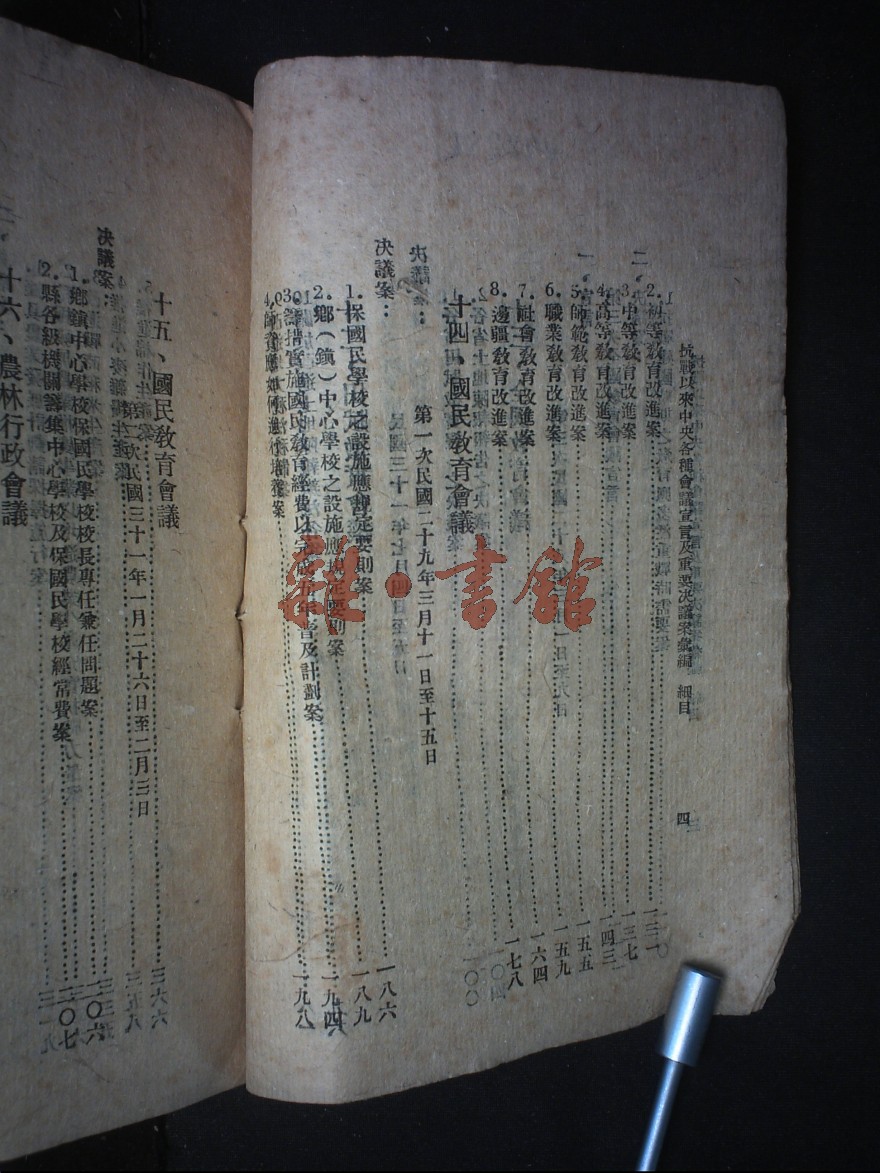 抗戰以來中央各種會議宣言及重要決議案彙編 細目 四
2.初等教育改進案
3.中等教育改進案……一三七
4.高等教育改進案……一四三
5.師範教育改進案……一五五
6.職業教育改進案……一五九
7.社會教育改進案……一六四
8.邊疆教育改進案……一七八
十四、國民教育會議
第一次民國二十九年三月十一日至十五日
決議案：……一八六
1.保國民學校之設施應規定要則案……一八九
2.鄉（鎮）中心學校之設施應規定要則案……一九四
3.籌措實施國民教育經費以完成五年普及計劃案
4.師資應如何進行培養案……一九八
雜·書館
十五、國民教育會議
第二次民國三十一年一月二十六日至二月三日
決議案：
1.鄉鎮中心學校保國民學校校長專任兼任問題案……二〇六
2.縣各級機關籌集中心學校及保國民學校經常費案……二〇七
十六、農林行政會議